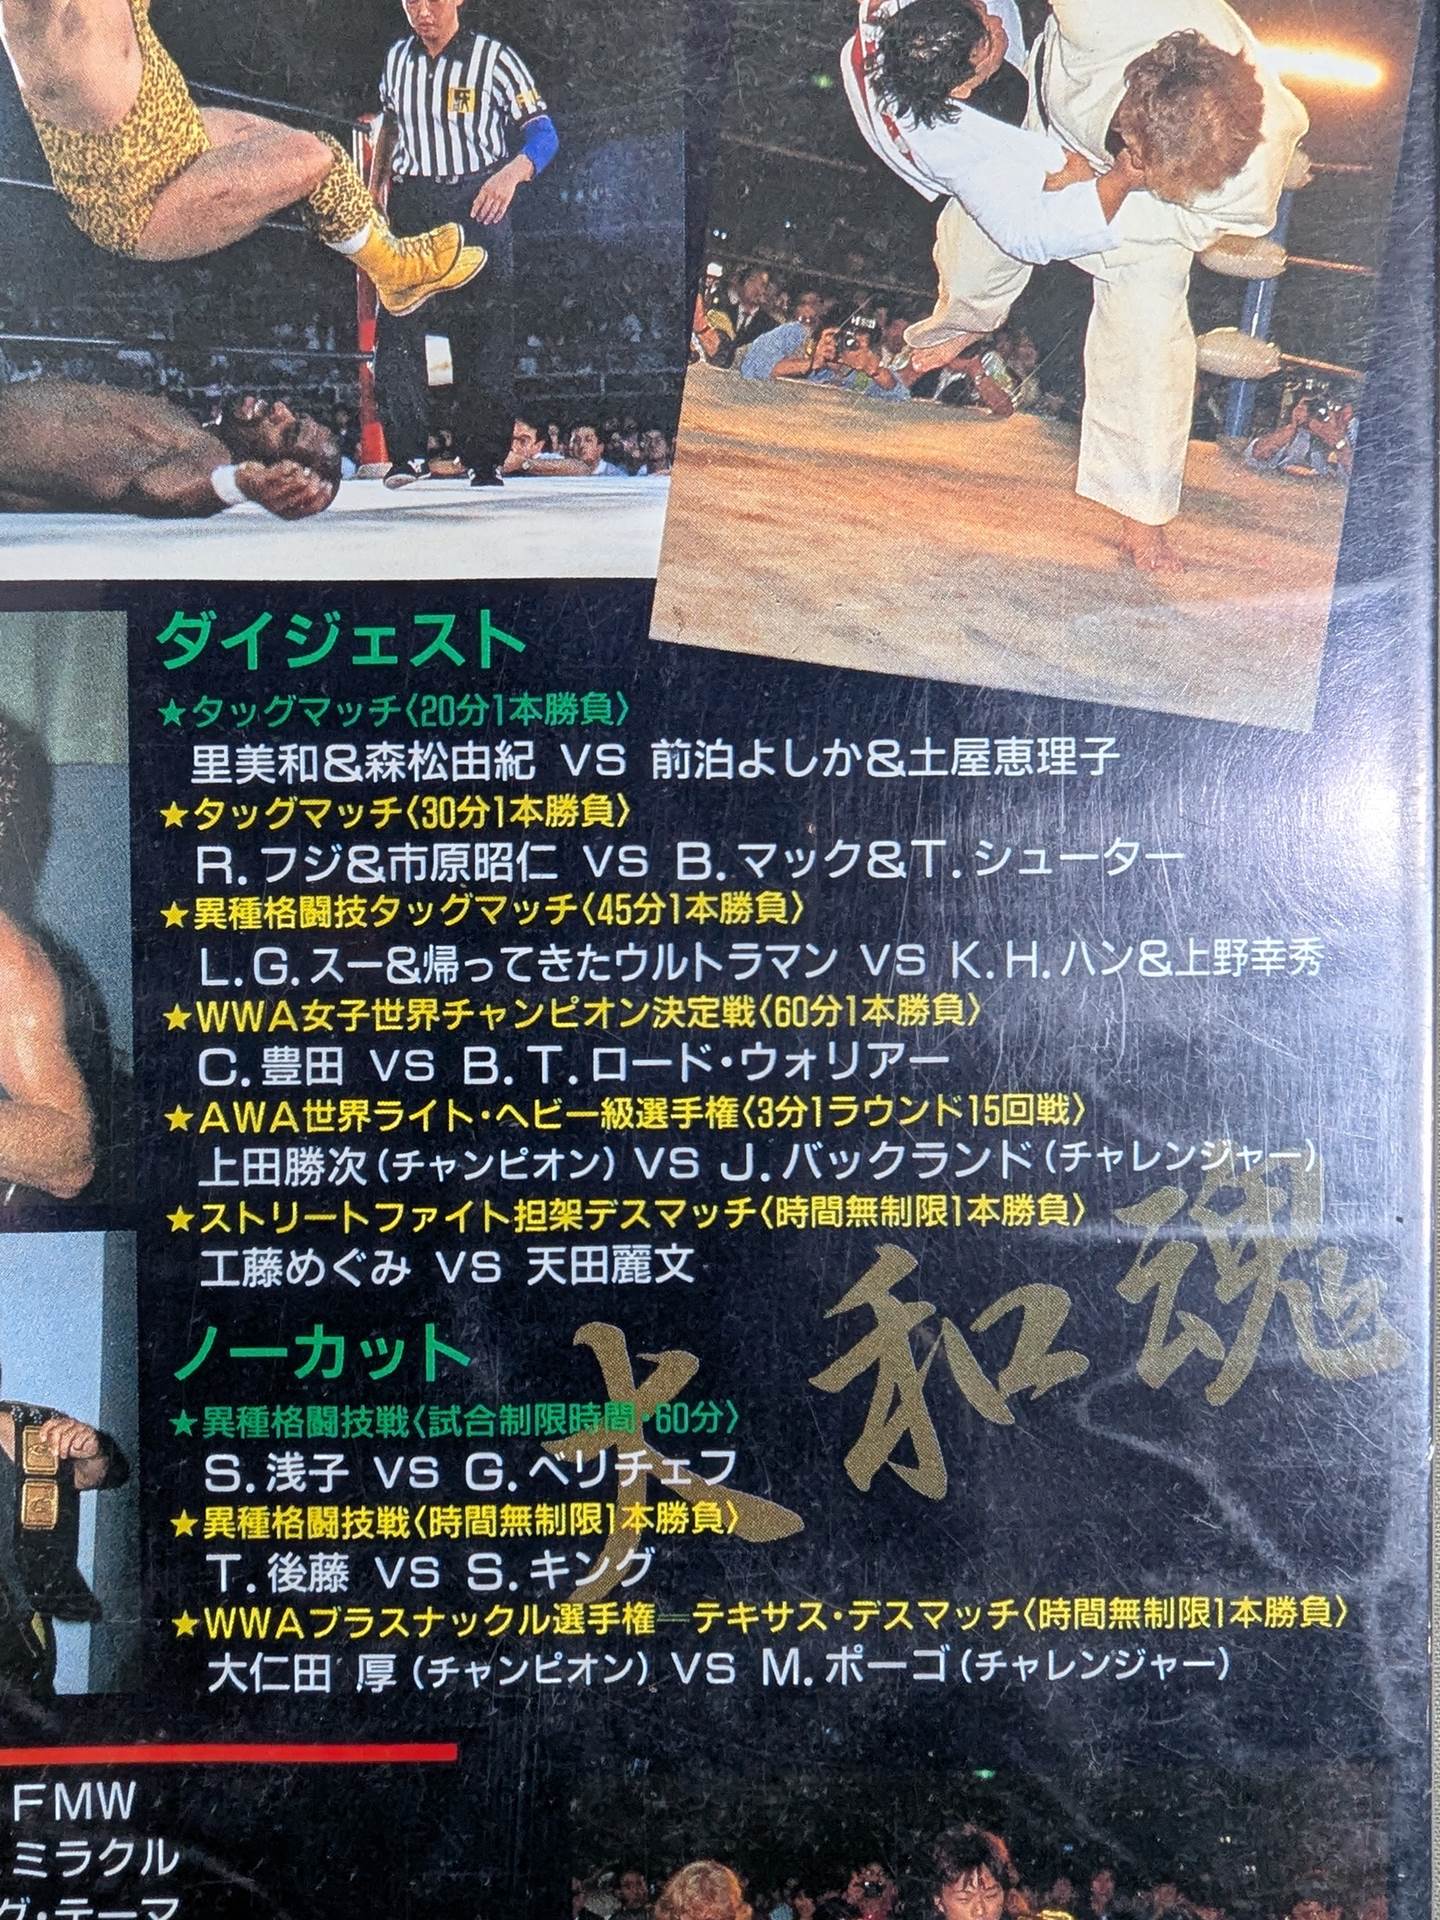 ダイジェスト
★タッグマッチ〈20分1本勝負〉
里美和&森松由紀 VS 前泊よしか&土屋恵理子
★タッグマッチ〈30分1本勝負〉
R.フジ&市原昭仁 VS B.マック&T.シューター
★異種格闘技タッグマッチ〈45分1本勝負〉
L.G.スー&帰ってきたウルトラマン VS K.H.ハン&上野幸秀
★WWA女子世界チャンピオン決定戦〈60分1本勝負〉
C.豊田 VS B.T.ロード・ウォリアー
★AWA世界ライト・ヘビー級選手権〈3分1ラウンド15回戦〉
上田勝次(チャンピオン) VS J.バックランド(チャレンジャー)
★ストリートファイト担架デスマッチ〈時間無制限1本勝負〉
工藤めぐみ VS 天田麗文
大和魂
ノーカット
★異種格闘技戦〈試合制限時間・60分〉
S.浅子 VS G.ベリチェフ
★異種格闘技戦〈時間無制限1本勝負〉
T.後藤 VS S.キング
★WWAブラスナックル選手権—テキサス・デスマッチ〈時間無制限1本勝負〉
大仁田 厚(チャンピオン) VS M.ポーゴ(チャレンジャー)
FMW
ミラクル
グ・テーマ